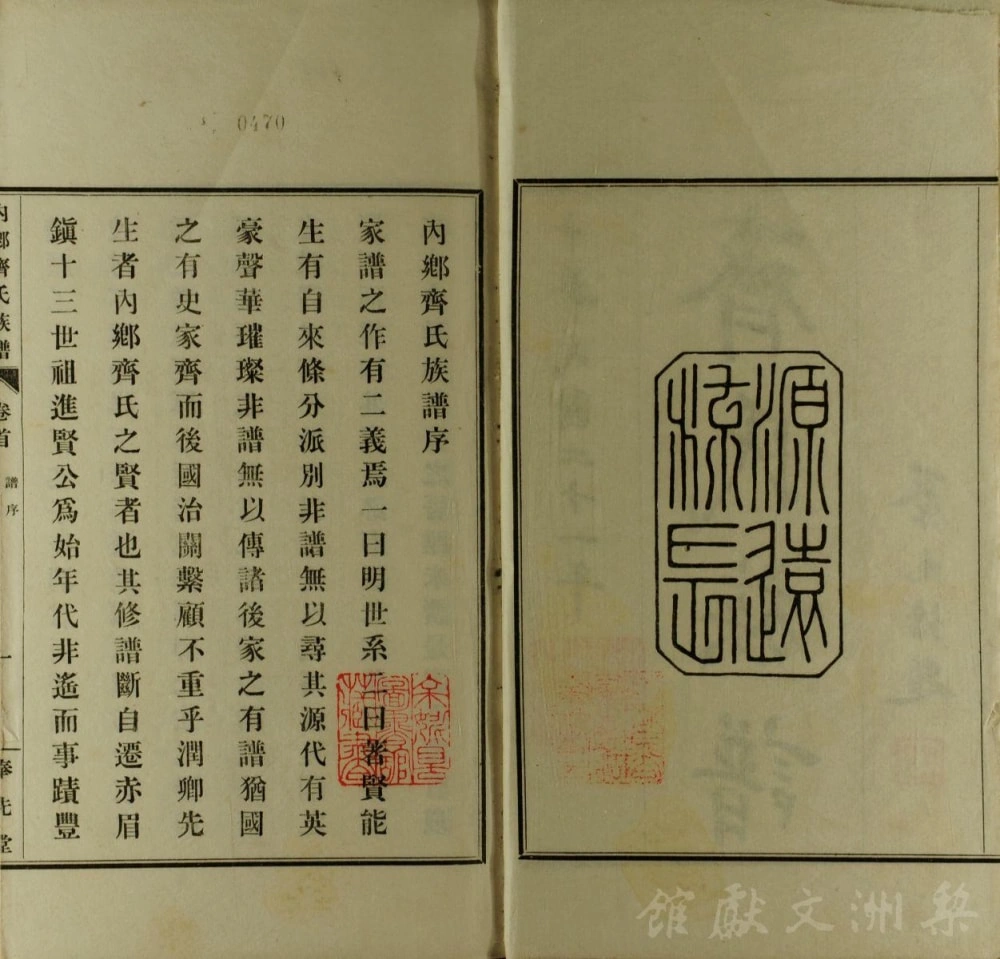 源遠
流長
0470
內鄉齊氏族譜序
家譜之作有二義焉一曰明世系一曰著賢能
生有自來條分派別非譜無以尋其源代有英
豪聲華璀璨非譜無以傳諸後家之有譜猶國
之有史家齊而後國治關繫顧不重乎潤卿先
生者內鄉齊氏之賢者也其修譜斷自遷赤眉
鎭十三世祖進賢公爲始年代非遙而事蹟豐
內鄉齊氏族譜 卷首 譜序 一 奉先堂
梨洲文獻館